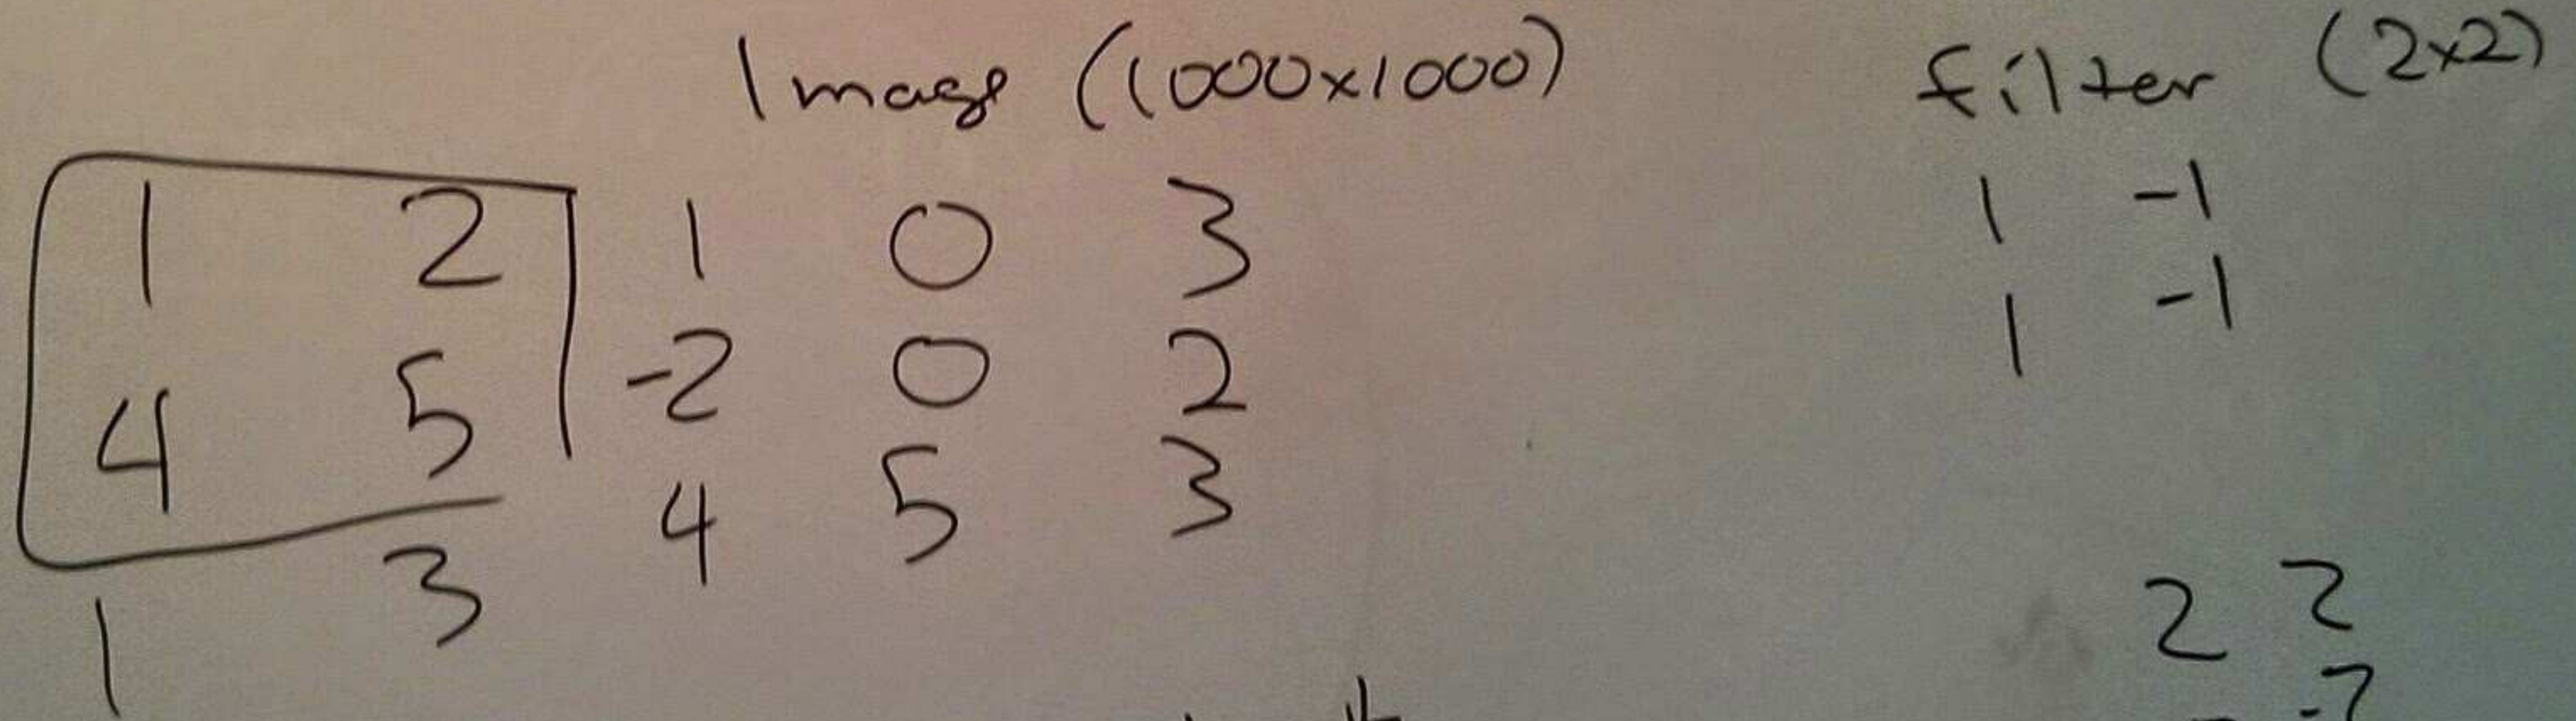 Image (1000x1000) filter (2x2)
1 2 1 0 3 1 -1
4 5 -2 0 2 1 -1
1 3 4 5 3
2 2